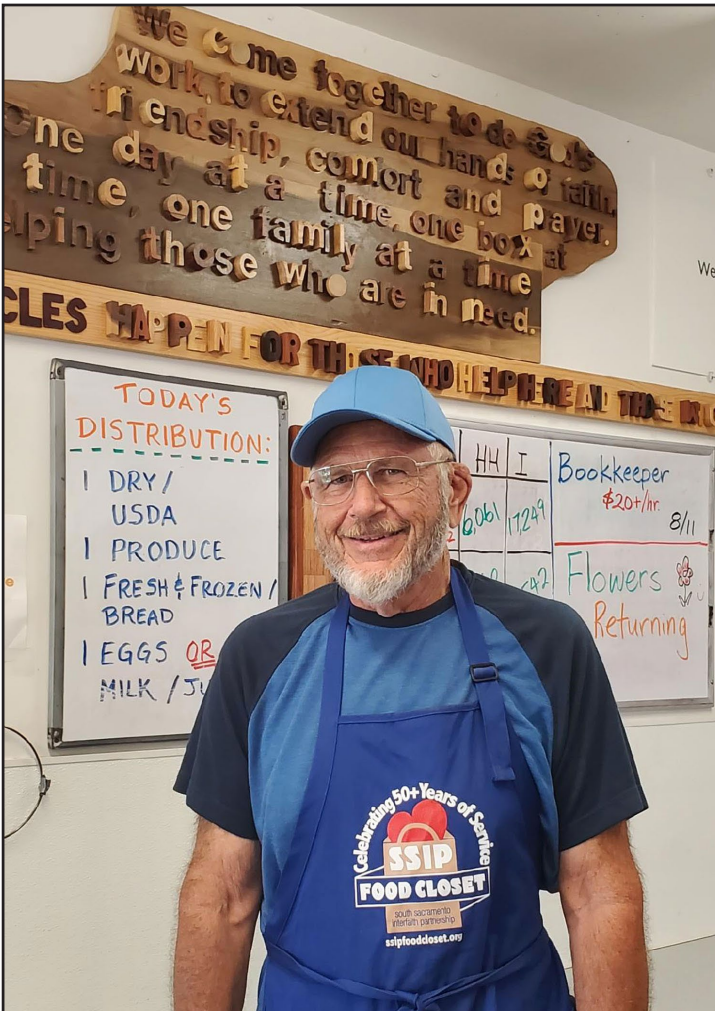 We come together to do God's
work, to extend our hands of faith,
friendship, comfort and payer.
One day at a time, one box at
time, one family at a time
elping those who are in need.
CLES HAPPEN FOR THOSE WHO HELP HERE AND THOSE IN
We
TODAY'S
DISTRIBUTION:
1 DRY/
USDA
1 PRODUCE
1 FRESH & FROZEN /
BREAD
1 EGGS OR
MILK /
HH I
6,061 17,249
Bookkeeper
$20+/hr.
8/11
Flowers
Returning
Celebrating 50+ Years of Service
SSIP
FOOD CLOSET
south sacramento
interfaith partnership
ssipfoodcloset.org